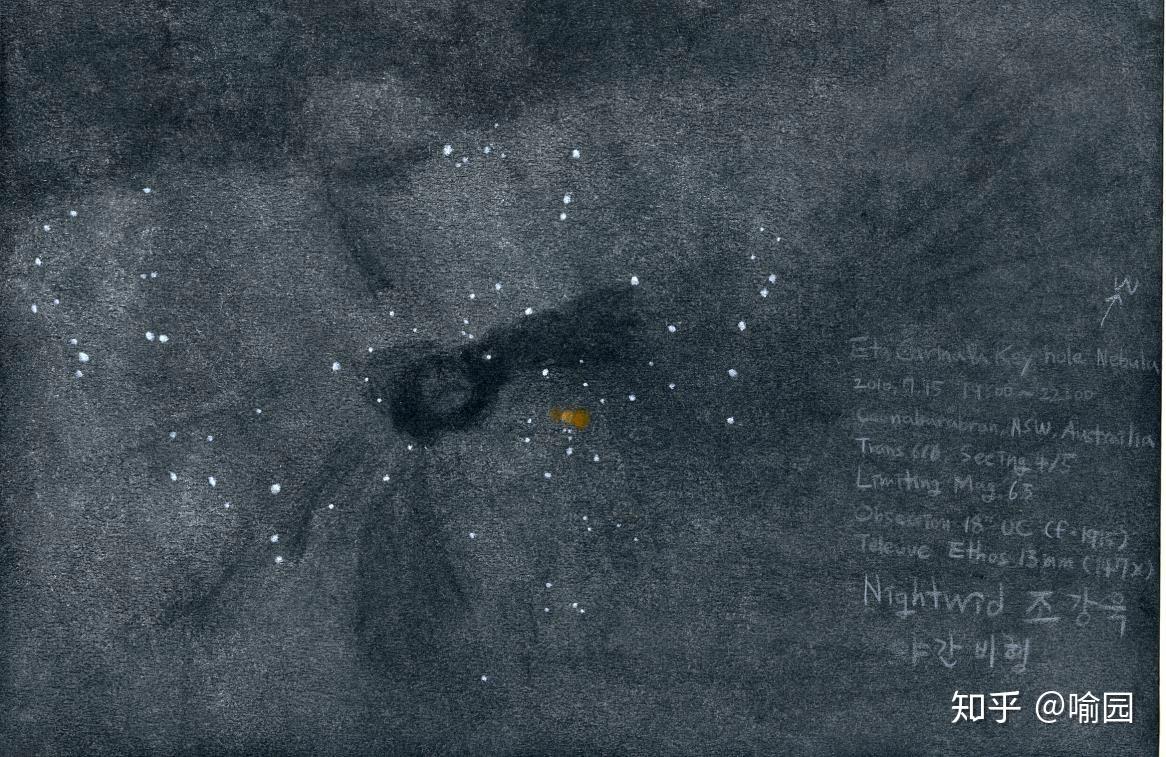 W
Eta Carina's Key hole Nebula
2010. 7. 15
Coonabarabran, NSW, Austrailia
Trans 6/6 Seeing 4/5
Limiting Mag. 6.5
Obsession 18" UC (f=1915)
Televue Ethos 13mm (147x)
Nightwid 조강욱
야간비행
知乎 @喻园